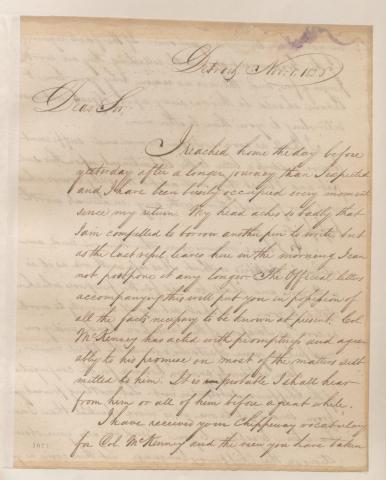 Detroit, Nov. 1.
Dear Sir,
I reached home the day before
yesterday after a longer journey than I expected
and I have been busily occupied every moment
since my return. My head aches so badly that
I am compelled to borrow another pen to write but
as the last vessel leaves here in the morning I can
not postpone it any longer. The Official letters
accompanying this will put you in possession of
all the facts necessary to be known at present. Col.
McKenney has acted with promptings and agree
ably to his promise on most of the matters sub
mitted to him. It is improbable I shall hear
from him or all of him before a great while.
I have received your Chippeway vocabulary
for Col. McKenney and the view you have taken